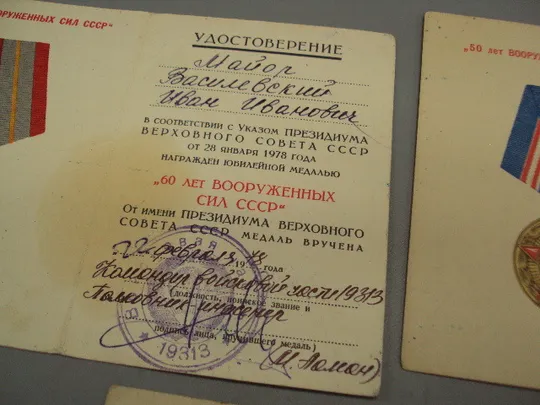 ООРУЖЕННЫХ СИЛ СССР"
УДОСТОВЕРЕНИЕ
Майор
Василевский
Иван Иванович
В СООТВЕТСТВИИ С УКАЗОМ ПРЕЗИДИУМА
ВЕРХОВНОГО СОВЕТА СССР
ОТ 28 ЯНВАРЯ 1978 ГОДА
НАГРАЖДЕН ЮБИЛЕЙНОЙ МЕДАЛЬЮ
„60 ЛЕТ ВООРУЖЕННЫХ
СИЛ СССР“
ОТ ИМЕНИ ПРЕЗИДИУМА ВЕРХОВНОГО
СОВЕТА СССР МЕДАЛЬ ВРУЧЕНА
22 февраля 1978 года
Командир войсковой части 19313
(должность, воинское звание и
Полковник инженер
подпись лица, вручившего медаль)
19313
„50 лет ВООРУЖ